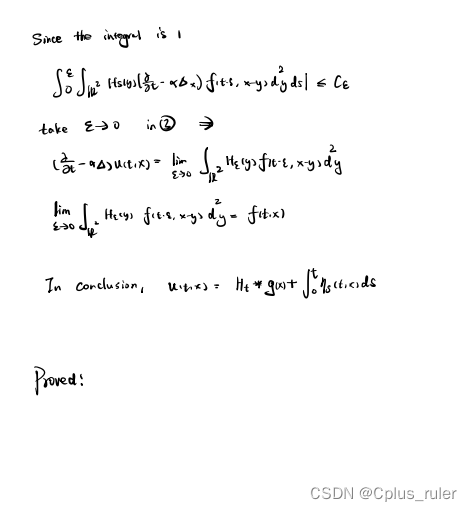 Since the integral is 1
∫₀^ε ∫_{ℝ²} |Hs(y)(∂/∂t - αΔx) f(t-s, x-y) d²y ds| ≤ Cε
take ε→0 in ② ⇒
(∂/∂t - αΔ) u(t,x) = lim_{ε→0} ∫_{ℝ²} Hε(y) f(t-ε, x-y) d²y
lim_{ε→0} ∫_{ℝ²} Hε(y) f(t-ε, x-y) d²y = f(t,x)
In conclusion, u(t,x) = Ht * g(x) + ∫₀^t ηs(t,x) ds
Proved:
CSDN @Cplus_ruler